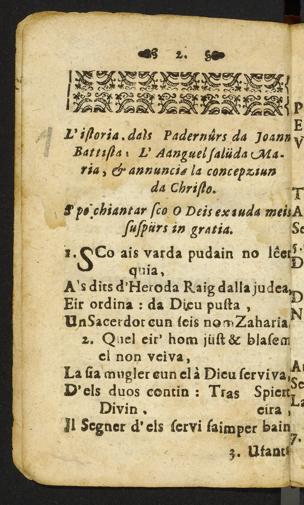 2.
L'istoria dals Padernûrs da Joann
Battista: L'Aanguel salüda Ma-
ria, & annuncia la concepziun
da Christo.
S'po chiantar sco O Deis exauda meis
suspürs in gratia.
1. SCo ais varda pudain no lêer
quia,
A's dits d'Heroda Raig dalla judea,
Eir ordina: da Dieu pusta,
Un Sacerdot cun seis nom Zaharia
2. Quel eir' hom jüst & blasem
el non veiva,
La sia mugler cun el â Dieu serviva,
D'els duos contin: Tras Spiert
Divin. eira,
Il Segner d'els servi saimper bain
3. Usant